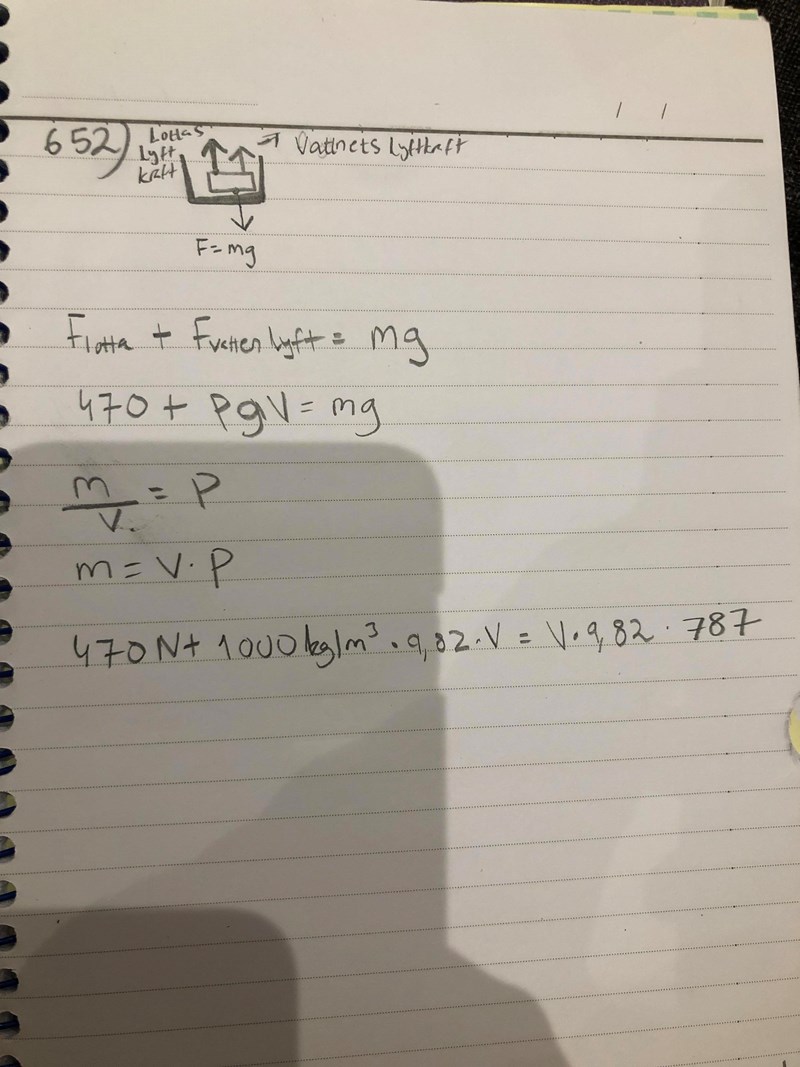 652) Lottas → Vattnets lyftkraft
lyft
kraft
F=mg
Flotta + Fvatten lyft = mg
470 + PgV = mg
m/V. = P
m = V·P
470N + 1000 kg/m³ · 9,82·V = V·9,82 · 787